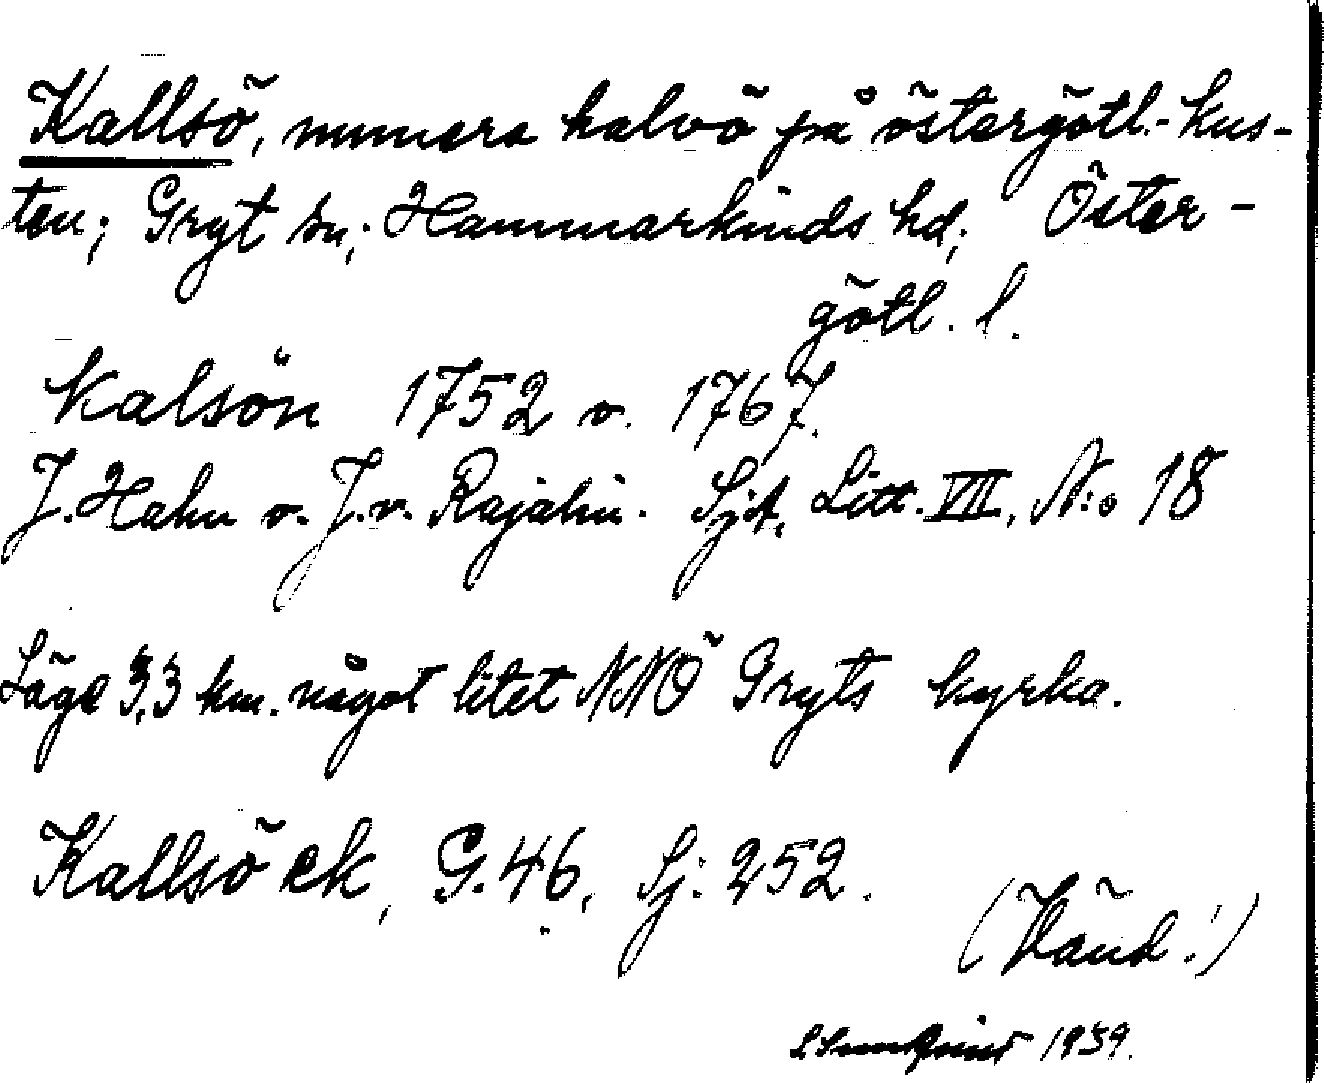 Kallsö, numera halvö på östergötl.-kus-
ten; Gryt sn; Hammarkinds hd; Öster-
götl. l.
Kalsön 1752 o. 1767.
J. Hahn o. J.v. Rajalin. Sjk. Litt. VII. N:o 18
Läge 3,3 km. något litet NNÖ Gryts kyrka.
Kallsö ek, G. 46, Sj: 252.
(Vänd!)
1939.